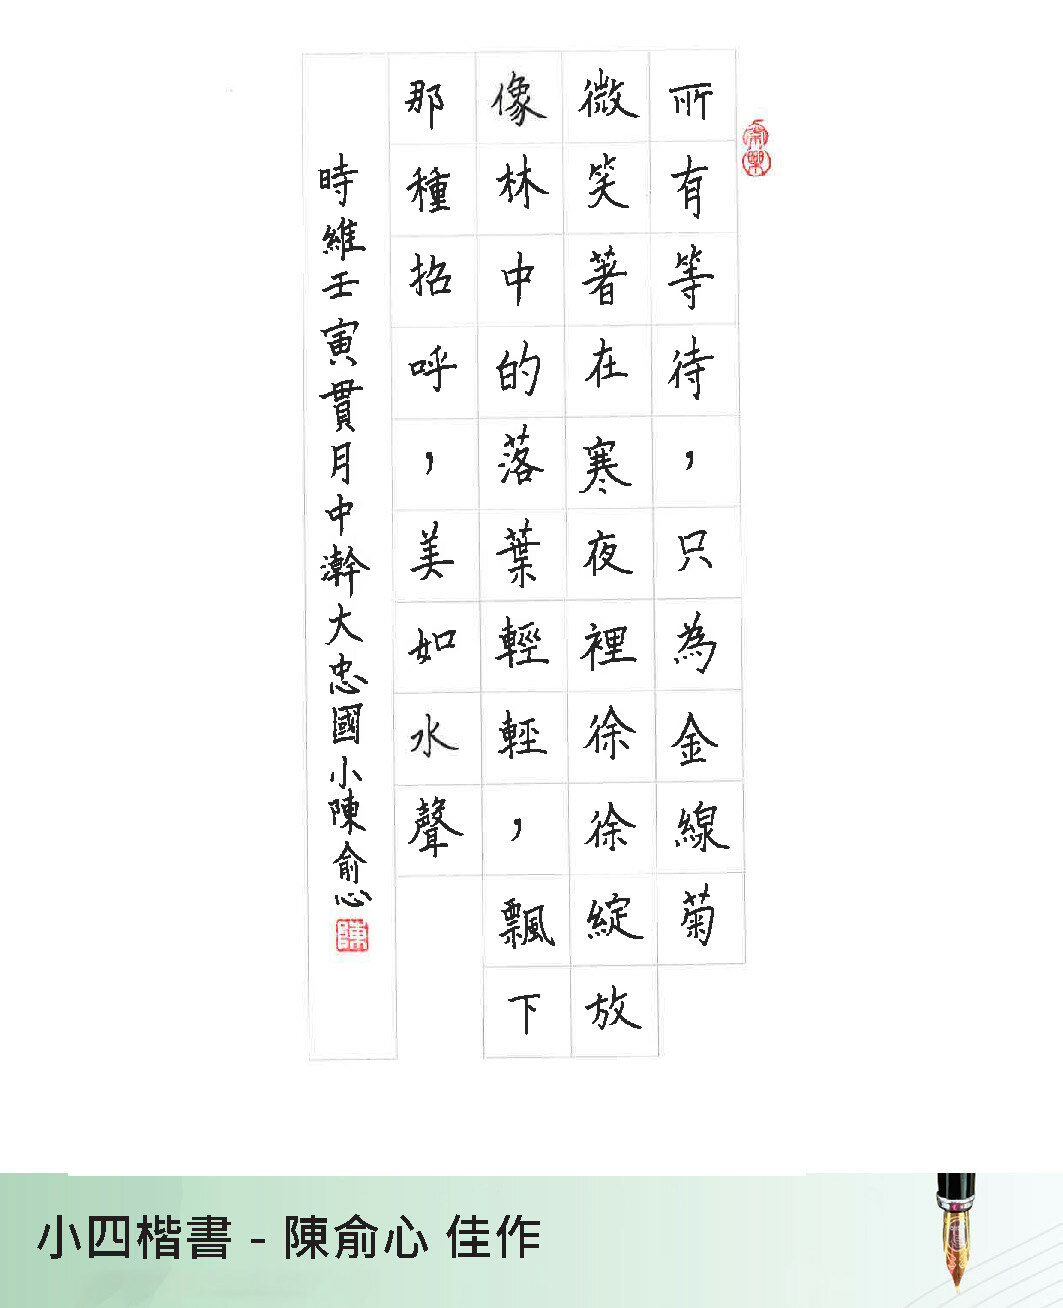 所有等待，只為金線菊
微笑著在寒夜裡徐徐綻放
像林中的落葉輕輕，飄下
那種招呼，美如水聲
時維壬寅貫月中澣大忠國小陳俞心
陳
小四楷書 - 陳俞心 佳作